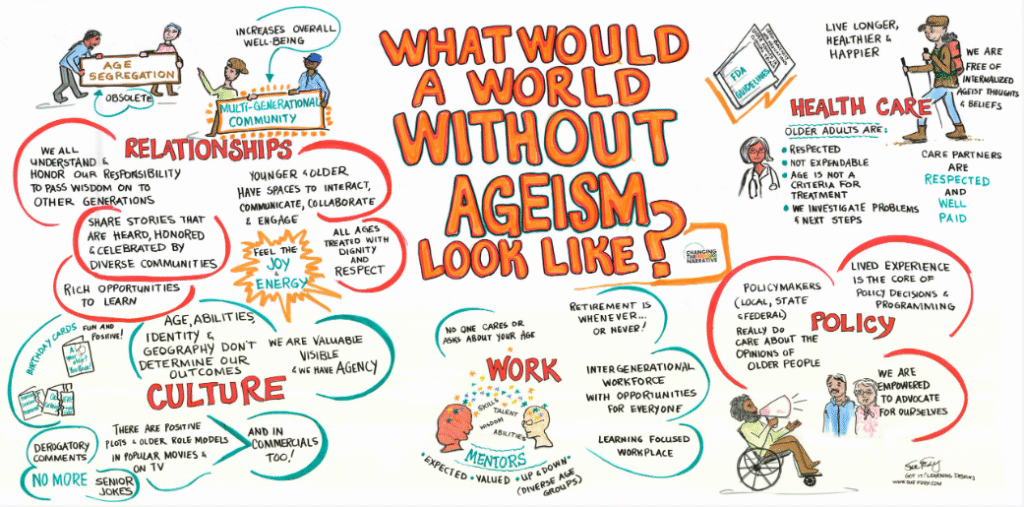 WHAT WOULD
A WORLD
WITHOUT
AGEISM
LOOK LIKE?
CHANGING
THE
NARRATIVE
AGE
SEGREGATION
OBSOLETE
INCREASES OVERALL
WELL-BEING
MULTI-GENERATIONAL
COMMUNITY
RELATIONSHIPS
WE ALL
UNDERSTAND &
HONOR OUR RESPONSIBILITY
TO PASS WISDOM ON TO
OTHER GENERATIONS
SHARE STORIES THAT
ARE HEARD, HONORED
& CELEBRATED BY
DIVERSE COMMUNITIES
RICH OPPORTUNITIES
TO LEARN
YOUNGER & OLDER
HAVE SPACES TO INTERACT,
COMMUNICATE, COLLABORATE
& ENGAGE
FEEL THE
JOY
&
ENERGY
ALL AGES
TREATED WITH
DIGNITY
AND
RESPECT
FDA
GUIDELINES
LIVE LONGER,
HEALTHIER &
HAPPIER
WE ARE
FREE OF
INTERNALIZED
AGEIST THOUGHTS
& BELIEFS
HEALTH CARE
OLDER ADULTS ARE:
• RESPECTED
• NOT EXPENDABLE
• AGE IS NOT A
CRITERIA FOR
TREATMENT
• WE INVESTIGATE PROBLEMS
& NEXT STEPS
CARE PARTNERS
ARE
RESPECTED
AND
WELL
PAID
BIRTHDAY CARDS
FUN AND
POSITIVE!
AGE, ABILITIES,
IDENTITY &
GEOGRAPHY DON'T
DETERMINE OUR
OUTCOMES
WE ARE VALUABLE
VISIBLE
& WE HAVE AGENCY
CULTURE
THERE ARE POSITIVE
PLOTS & OLDER ROLE MODELS
IN POPULAR MOVIES &
ON TV
AND IN
COMMERCIALS
TOO!
DEROGATORY
COMMENTS
NO MORE
SENIOR
JOKES
NO ONE CARES OR
ASKS ABOUT YOUR AGE
RETIREMENT IS
WHENEVER...
OR NEVER!
WORK
SKILLS
TALENT
WISDOM
ABILITIES
MENTORS
• EXPECTED • VALUED • UP & DOWN
(DIVERSE AGE
GROUPS)
INTERGENERATIONAL
WORKFORCE
WITH OPPORTUNITIES
FOR EVERYONE
LEARNING FOCUSED
WORKPLACE
POLICYMAKERS
(LOCAL, STATE
& FEDERAL)
REALLY DO
CARE ABOUT THE
OPINIONS OF
OLDER PEOPLE
LIVED EXPERIENCE
IS THE CORE OF
POLICY DECISIONS &
PROGRAMMING
POLICY
WE ARE
EMPOWERED
TO ADVOCATE
FOR OURSELVES